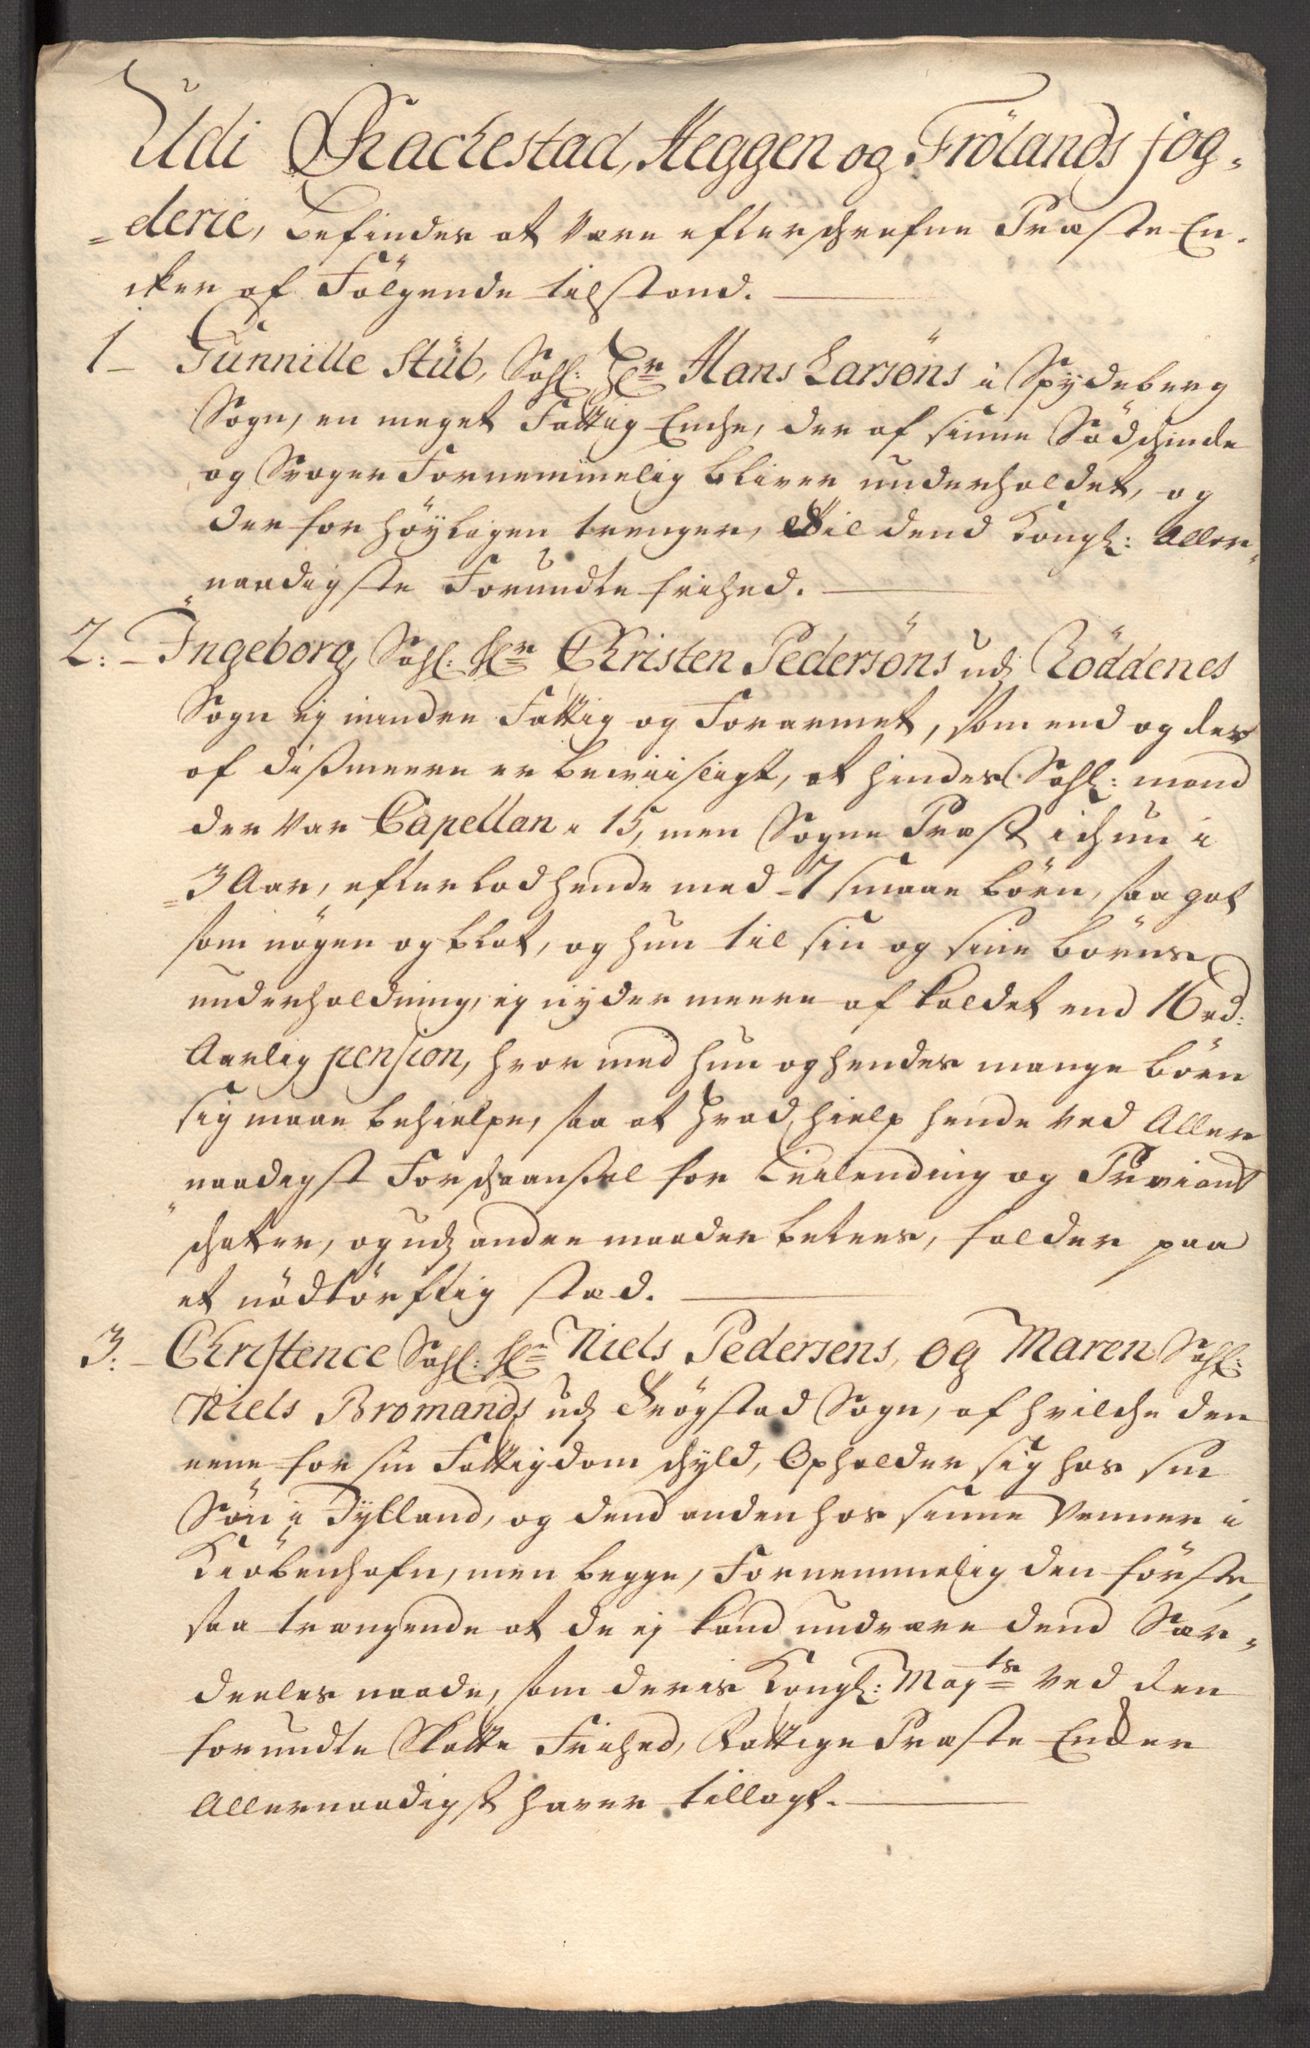 Udi Rackestad, Heggen og Frölands fog-
derie, befindes at være efterschrefne Præste En-
cker af Fölgende tilstand.
1 Gunnille Stüb, Sahl: Hr Hans Larsöns i Spydeberg
Sogn, en meget Fattig Enche, der af sinne Södschinde
og Svoger Fornemmelig bliver underholdet, og
der for höyligen trenger, til dend Kongl: Aller-
naadigste Forundte frihed.
2. Ingeborg, Sahl: Hr Christen Pedersöns udj Röddenes
Sogn ej mindre Fattig og Forarmet, som end og der
af dismeere er beviisligt, at hindes Sahl: mand
der var Capellan i 15, men Sogne Præst ichun i
3 Aar, efterlod hende med 7 smaae börn, saa got
som nögen og blot, og hun til sin og sine börns
underholdning, ej nyder meere af kaldet end 16 rd:
Aarlig pension, hvor med hun og hendes mange börn
sig maae behielpe, saa at hvad hielp hende ved Aller
naadigst Forschaansel for Leilending og Proviant
schatter, og udj andre maader betees, falder paa
et nödtörftig stæd.
3. Christence Sahl: Hr Niels Pedersens, og Maren Sahl:
Niels Bromands udj Trögstad Sogn, af hvilche den
eene for sin Fattigdom schyld, Opholder sig hos sin
Sön i Jylland, og dend anden hos sinne Venner i
Kiöbenhafn, men begge, Fornemmelig den förste,
saa trængende at de ej kand undvære dend Sær-
deeles naade, som deris Kongl: Mayts ved den
forundte Skatte Frihed, Fattige Præste Encker
Allernaadigst haver tillagt.